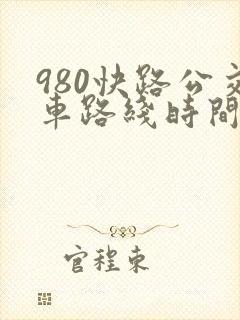 980快路公交
車路綫時間
官程東